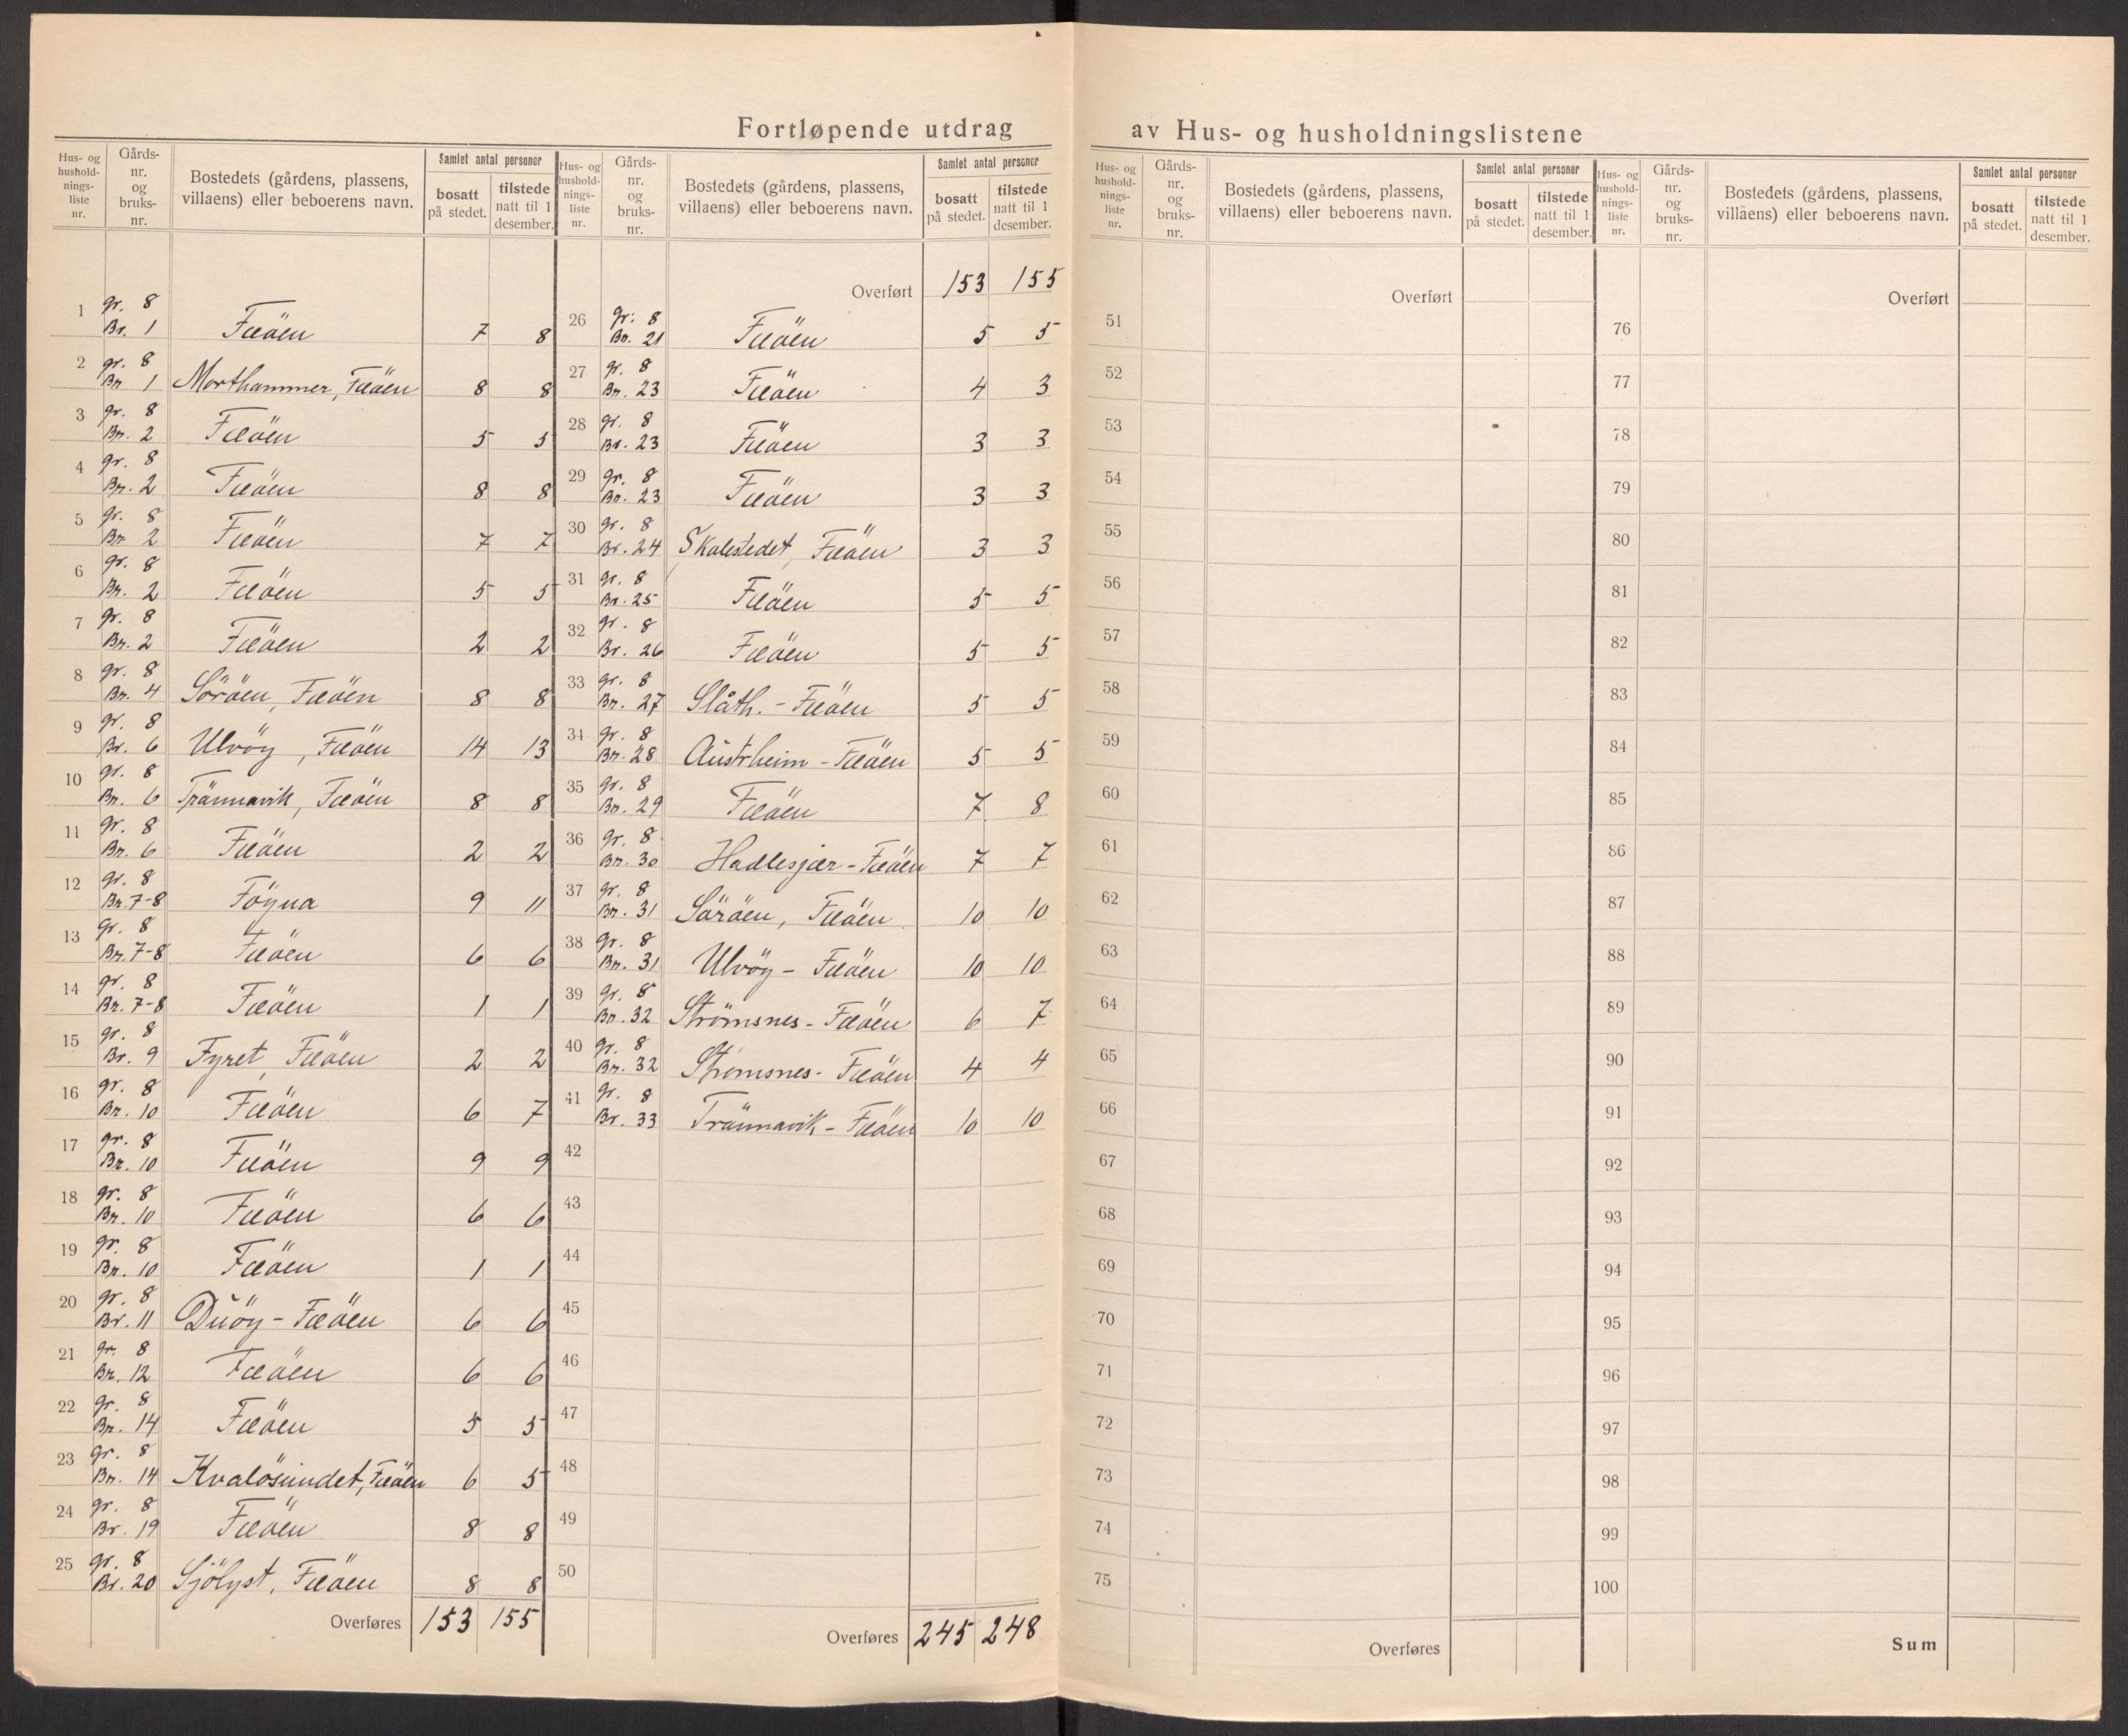 Fortløpende utdrag av Hus- og husholdningslistene
Hus- og husholdnings-liste nr. | Gårds-nr. og bruks-nr. | Bostedets (gårdens, plassens, villaens) eller beboerens navn. | Samlet antal personer | bosatt på stedet. | tilstede natt til 1 desember.
1 gr. 8 Br. 1 Fæöen 7 8
2 gr. 8 Br. 1 Morthammer, Fæöen 8 8
3 gr. 8 Br. 2 Fæöen 5 5
4 gr. 8 Br. 2 Fæöen 8 8
5 gr. 8 Br. 2 Fæöen 7 7
6 gr. 8 Br. 2 Fæöen 5 5
7 gr. 8 Br. 2 Fæöen 2 2
8 gr. 8 Br. 4 Söröen, Fæöen 8 8
9 gr. 8 Br. 6 Ulvöy, Fæöen 14 13
10 gr. 8 Br. 6 Trännavik, Fæöen 8 8
11 gr. 8 Br. 6 Fæöen 2 2
12 gr. 8 Br. 7-8 Föyna 9 11
13 gr. 8 Br. 7-8 Fæöen 6 6
14 gr. 8 Br. 7-8 Fæöen 1 1
15 gr. 8 Br. 9 Fyret, Fæöen 2 2
16 gr. 8 Br. 10 Fæöen 6 7
17 gr. 8 Br. 10 Fæöen 9 9
18 gr. 8 Br. 10 Fæöen 6 6
19 gr. 8 Br. 10 Fæöen 1 1
20 gr. 8 Br. 11 Duöy - Fæöen 6 6
21 gr. 8 Br. 12 Fæöen 6 6
22 gr. 8 Br. 14 Fæöen 5 5
23 gr. 8 Br. 14 Kvalösundet, Fæöen 6 5
24 gr. 8 Br. 19 Fæöen 8 8
25 gr. 8 Br. 20 Sjölyst, Fæöen 8 8
Overføres 153 155
Hus- og husholdnings-liste nr. | Gårds-nr. og bruks-nr. | Bostedets (gårdens, plassens, villaens) eller beboerens navn. | Samlet antal personer | bosatt på stedet. | tilstede natt til 1 desember.
Overført 153 155
26 gr. 8 Br. 21 Fæöen 5 5
27 gr. 8 Br. 23 Fæöen 4 3
28 gr. 8 Br. 23 Fæöen 3 3
29 gr. 8 Br. 23 Fæöen 3 3
30 gr. 8 Br. 24 Skolestedet, Fæöen 3 3
31 gr. 8 Br. 25 Fæöen 5 5
32 gr. 8 Br. 26 Fæöen 5 5
33 gr. 8 Br. 27 Slåth. - Fæöen 5 5
34 gr. 8 Br. 28 Austrheim - Fæöen 5 5
35 gr. 8 Br. 29 Fæöen 7 8
36 gr. 8 Br. 30 Hadlesjær - Fæöen 7 7
37 gr. 8 Br. 31 Söröen, Fæöen 10 10
38 gr. 8 Br. 31 Ulvöy - Fæöen 10 10
39 gr. 8 Br. 32 Strömsnes - Fæöen 6 7
40 gr. 8 Br. 32 Strömsnes - Fæöen 4 4
41 gr. 8 Br. 33 Trännavik - Fæöen 10 10
42
43
44
45
46
47
48
49
50
Overføres 245 248
Hus- og husholdnings-liste nr. | Gårds-nr. og bruks-nr. | Bostedets (gårdens, plassens, villaens) eller beboerens navn. | Samlet antal personer | bosatt på stedet. | tilstede natt til 1 desember.
Overført
51
52
53
54
55
56
57
58
59
60
61
62
63
64
65
66
67
68
69
70
71
72
73
74
75
Overføres
Hus- og husholdnings-liste nr. | Gårds-nr. og bruks-nr. | Bostedets (gårdens, plassens, villaens) eller beboerens navn. | Samlet antal personer | bosatt på stedet. | tilstede natt til 1 desember.
Overført
76
77
78
79
80
81
82
83
84
85
86
87
88
89
90
91
92
93
94
95
96
97
98
99
100
Sum